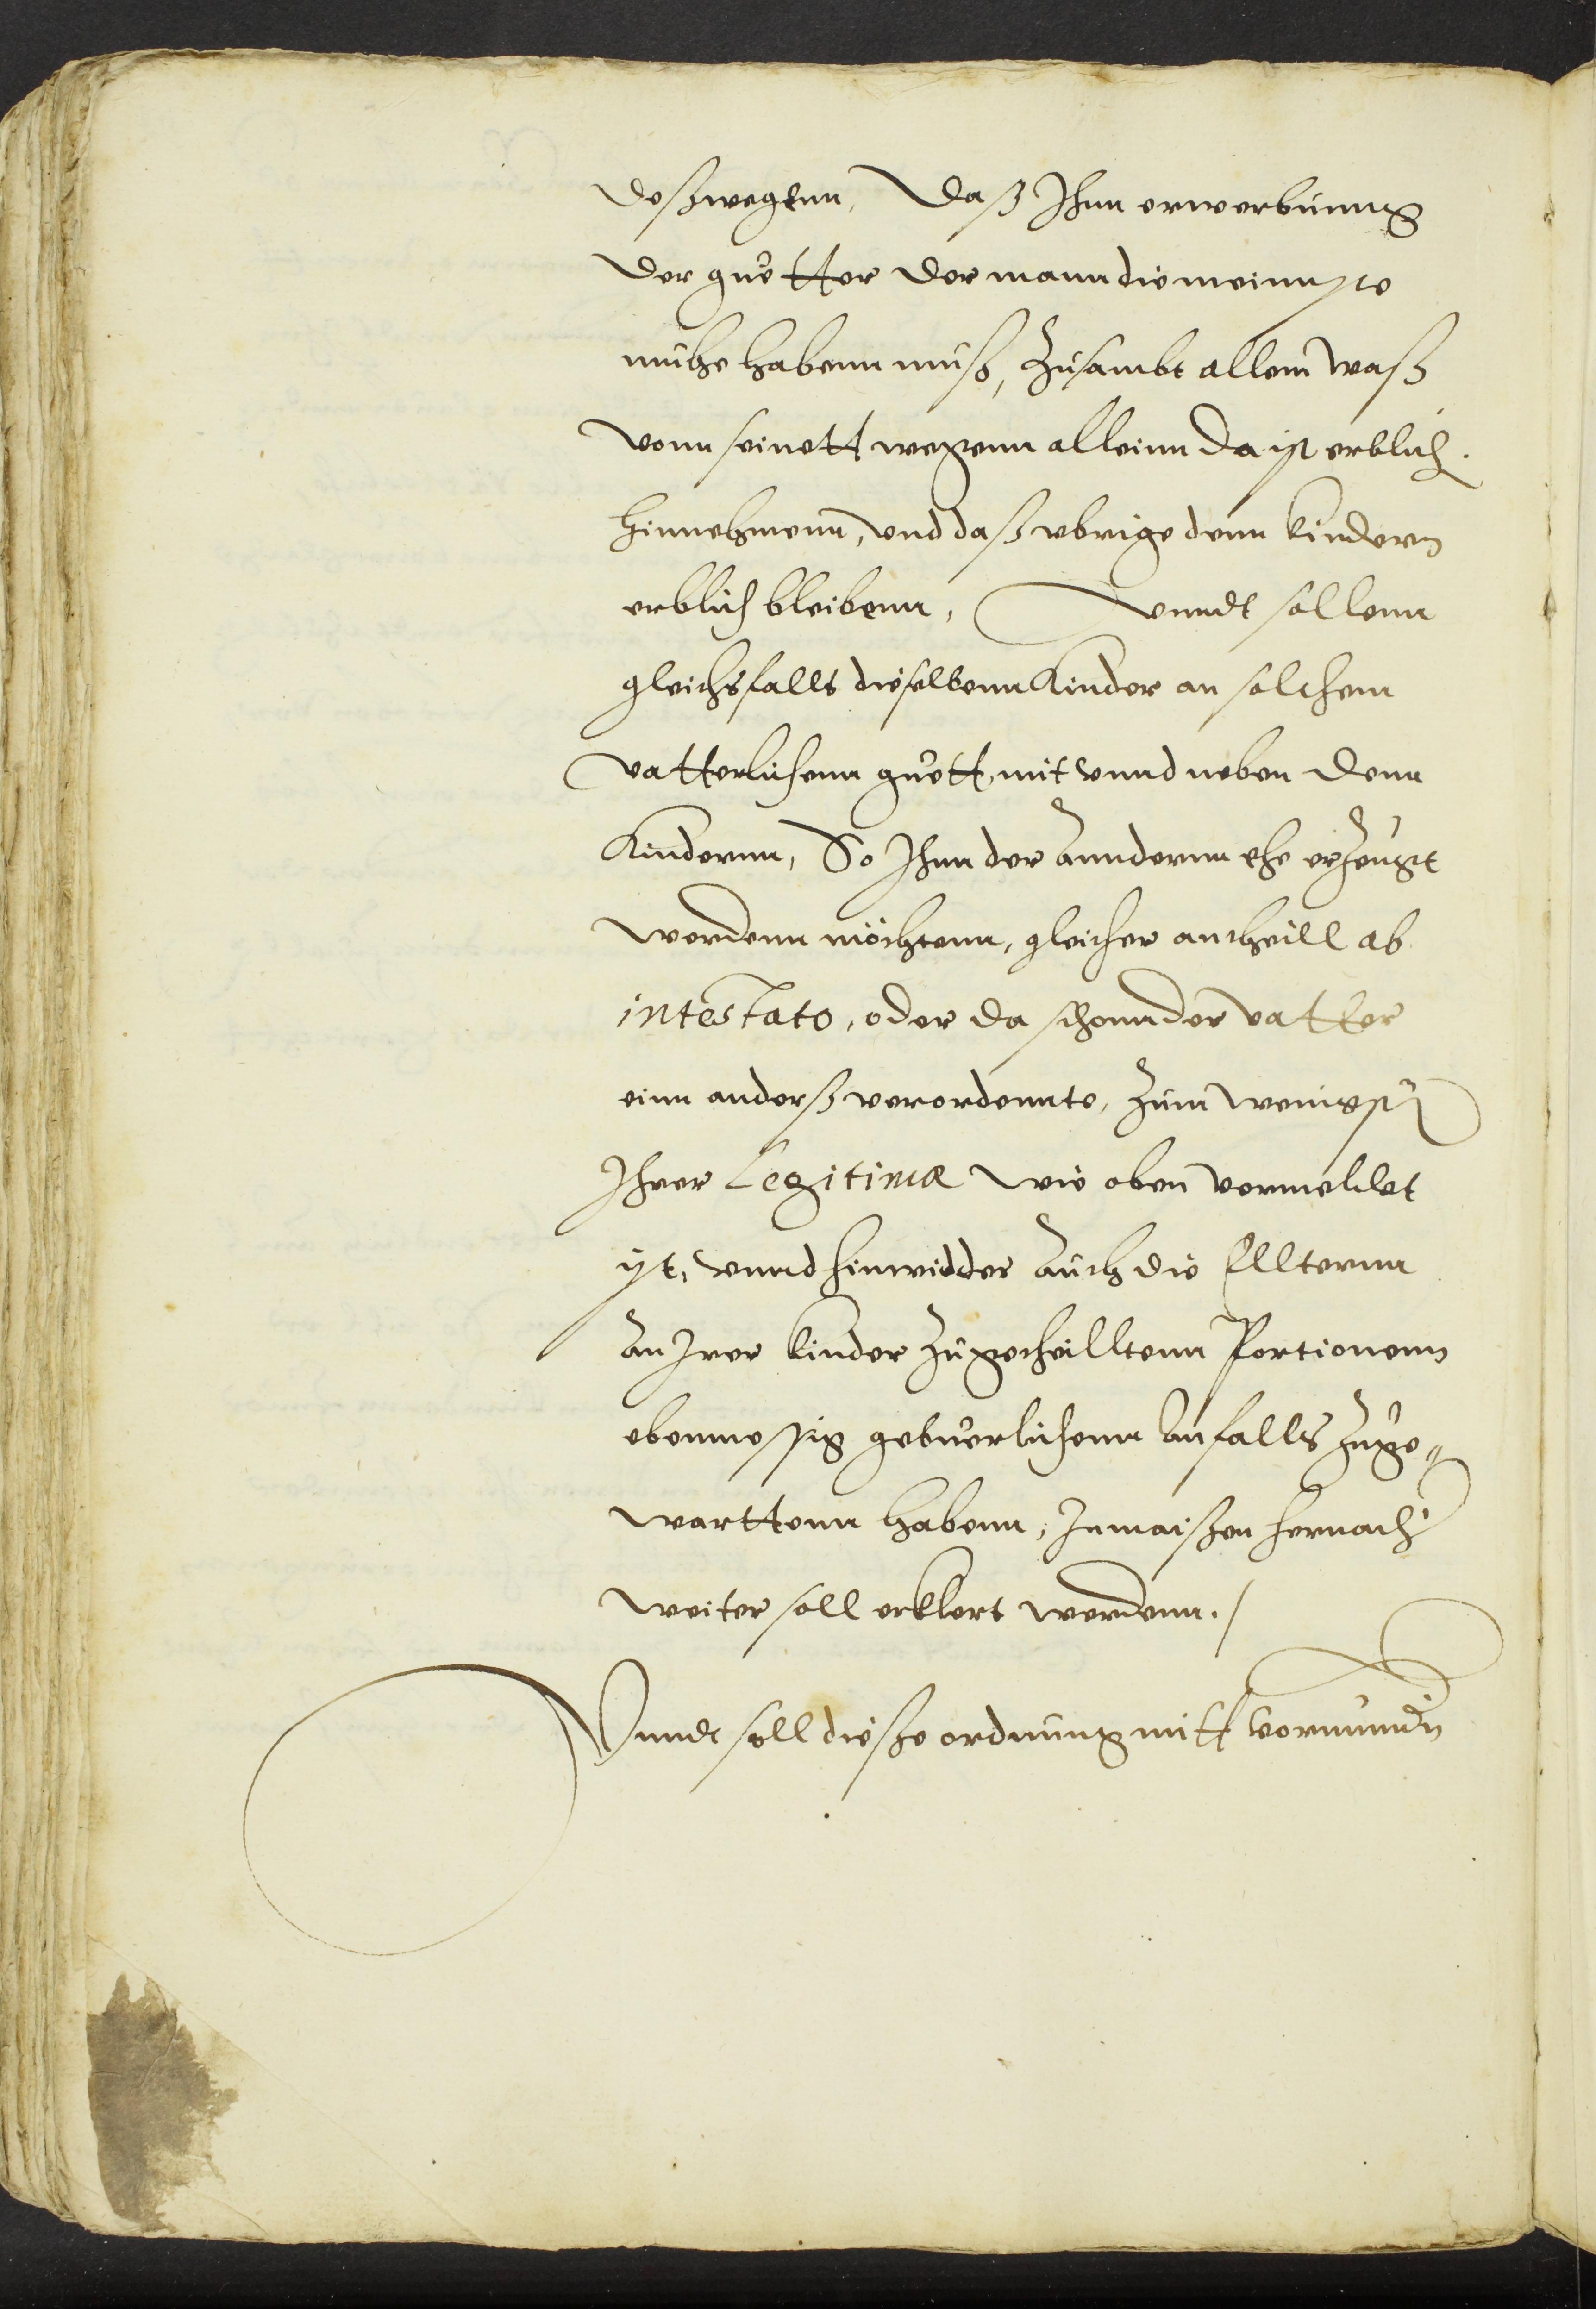 deßwegenn, Daß Ihnn erwerbunng
der guetter der mann die meinnste
muhe habenn muß, Zusambt allem waß
vonn seinett wegenn alleinn da ist erblich
hinnehmenn, vnd daß vbrige denn kindern
erblich bleibenn, vnndt sollenn
gleichsfalls dieselbenn Kinder an solchem
vatterlichenn guett, mit vnnd neben denn
Kindernn, So Ihnn der anndernn ehe erzeugt
werdenn möchtenn, gleicher antheill ab
intestato, oder da schonn der vatter
einn anderß verordennte, zum wenigsten
Ihrer Legitimæ wie oben vermeldet
ist, vnnd hinwidder auch die Ellternn
an Irer kinder zugetheilltenn Portionenn
ebenmessig gebuerlichenn anfalls zuge-
warttenn habenn, Inmaißen hernach
weiter soll erklert werdenn./
Vnndt soll dieße ordnung mitt vormunden